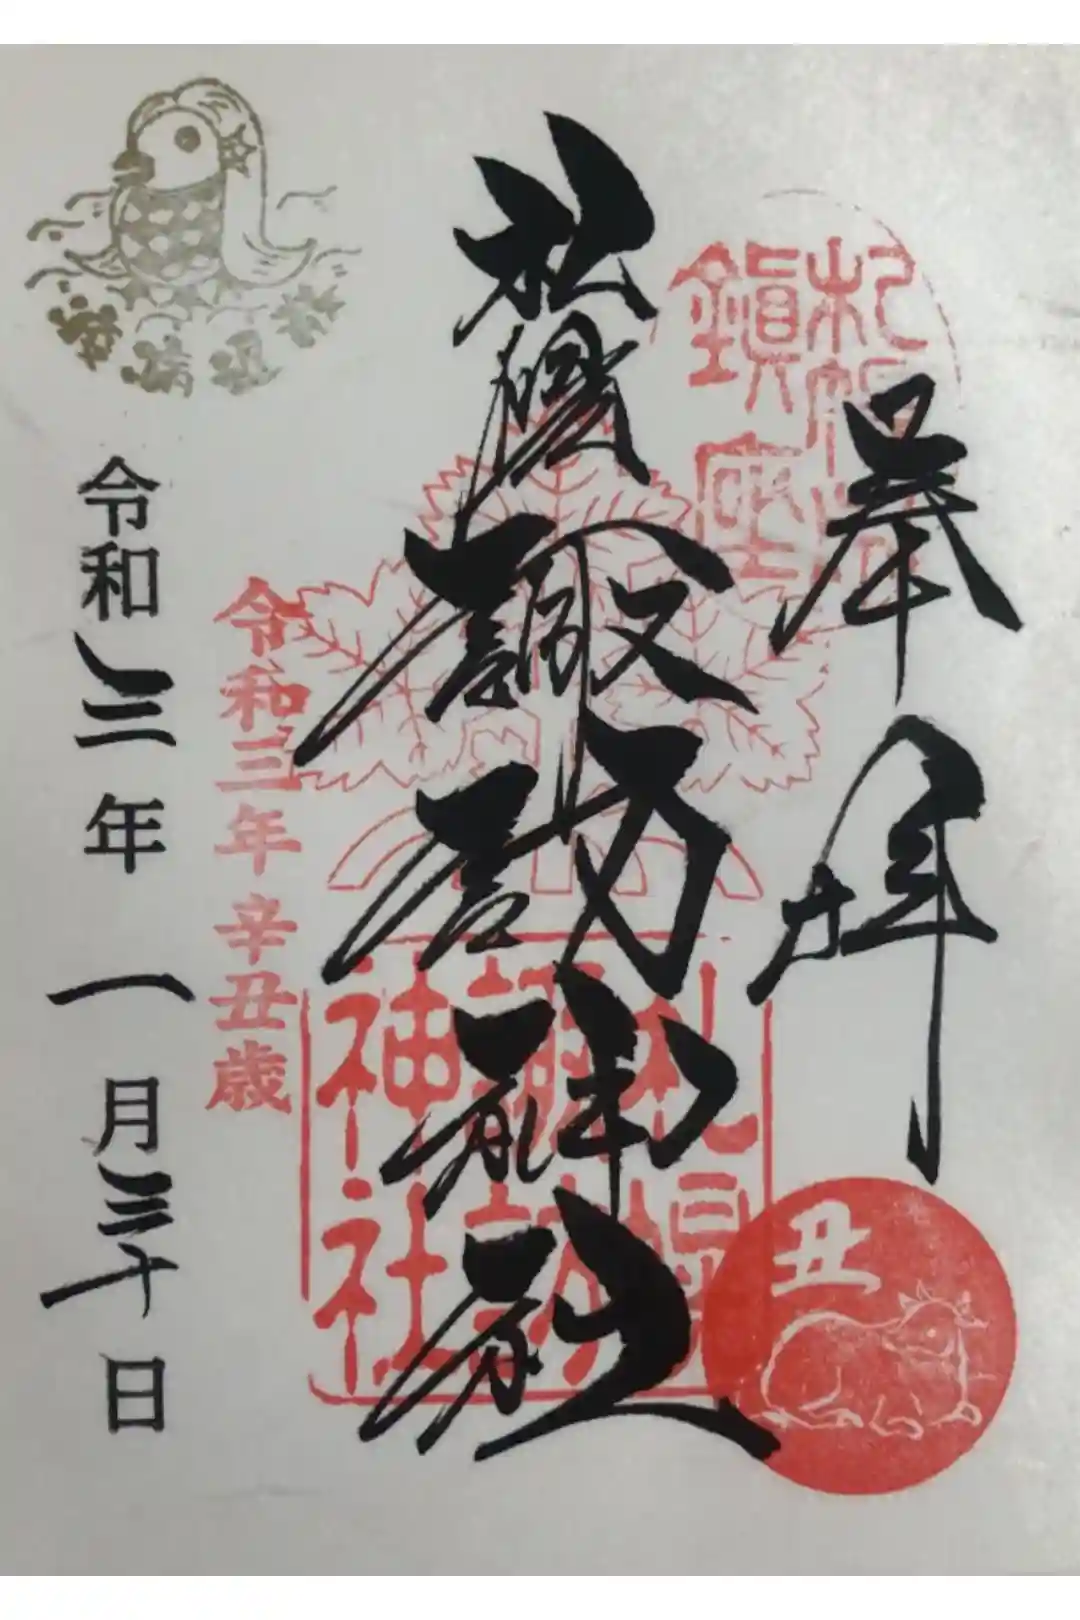 奉拝
札幌
鎮座
札幌諏訪神社
札幌
諏訪
神社
丑
令和三年辛丑歳
令和三年一月三十日